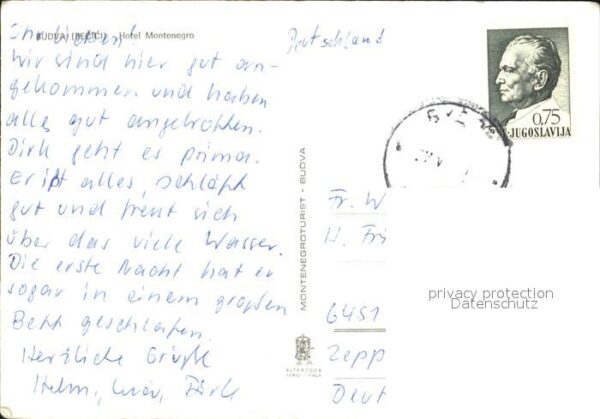 BUDVA (BEČIĆI) Hotel Montenegro
Ihr Lieben!
Wir sind hier gut an-
gekommen und haben
alles gut angetroffen.
Dirk geht es prima.
Er ißt alles, schläft
gut und freut sich
über das viele Wasser.
Die erste Nacht hat er
sogar in einem großen
Bett geschlafen.
Herzliche Grüße
Helm, Dirk
MONTENEGROTURIST - BUDVA
ALTEROCCA
TERNI - ITALY
Deutschland
0,75
JUGOSLAVIJA
Fr. W
H. Fri
6451
Zepp
Deut
privacy protection
Datenschutz